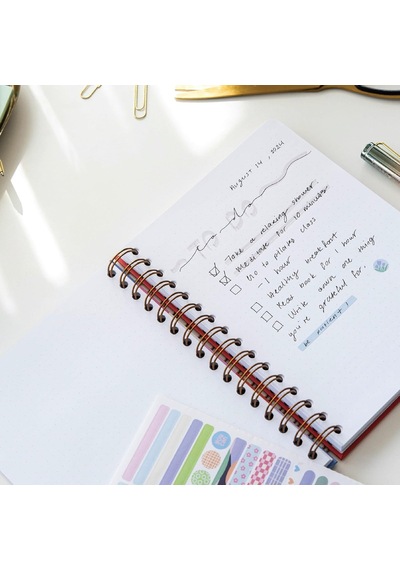 August 14, 2024
TO DO
to do
Take a relaxing shower
Meditate for 10 minutes
Go to pilates class
- 1 hour
Healthy breakfast
Read book for 1 hour
Write down one thing
you're grateful for: